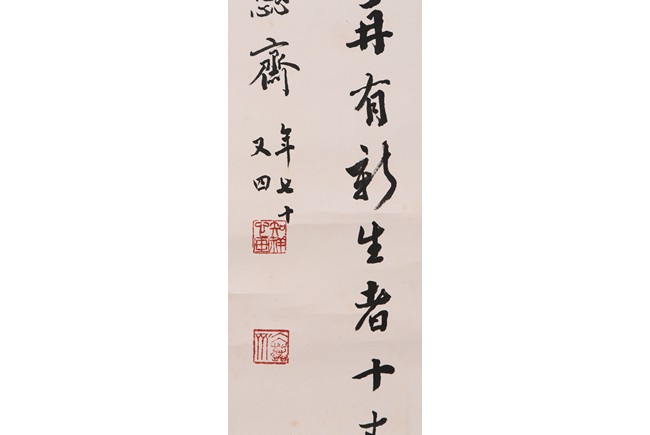 再有新生者十丈
齋
年七十
又四